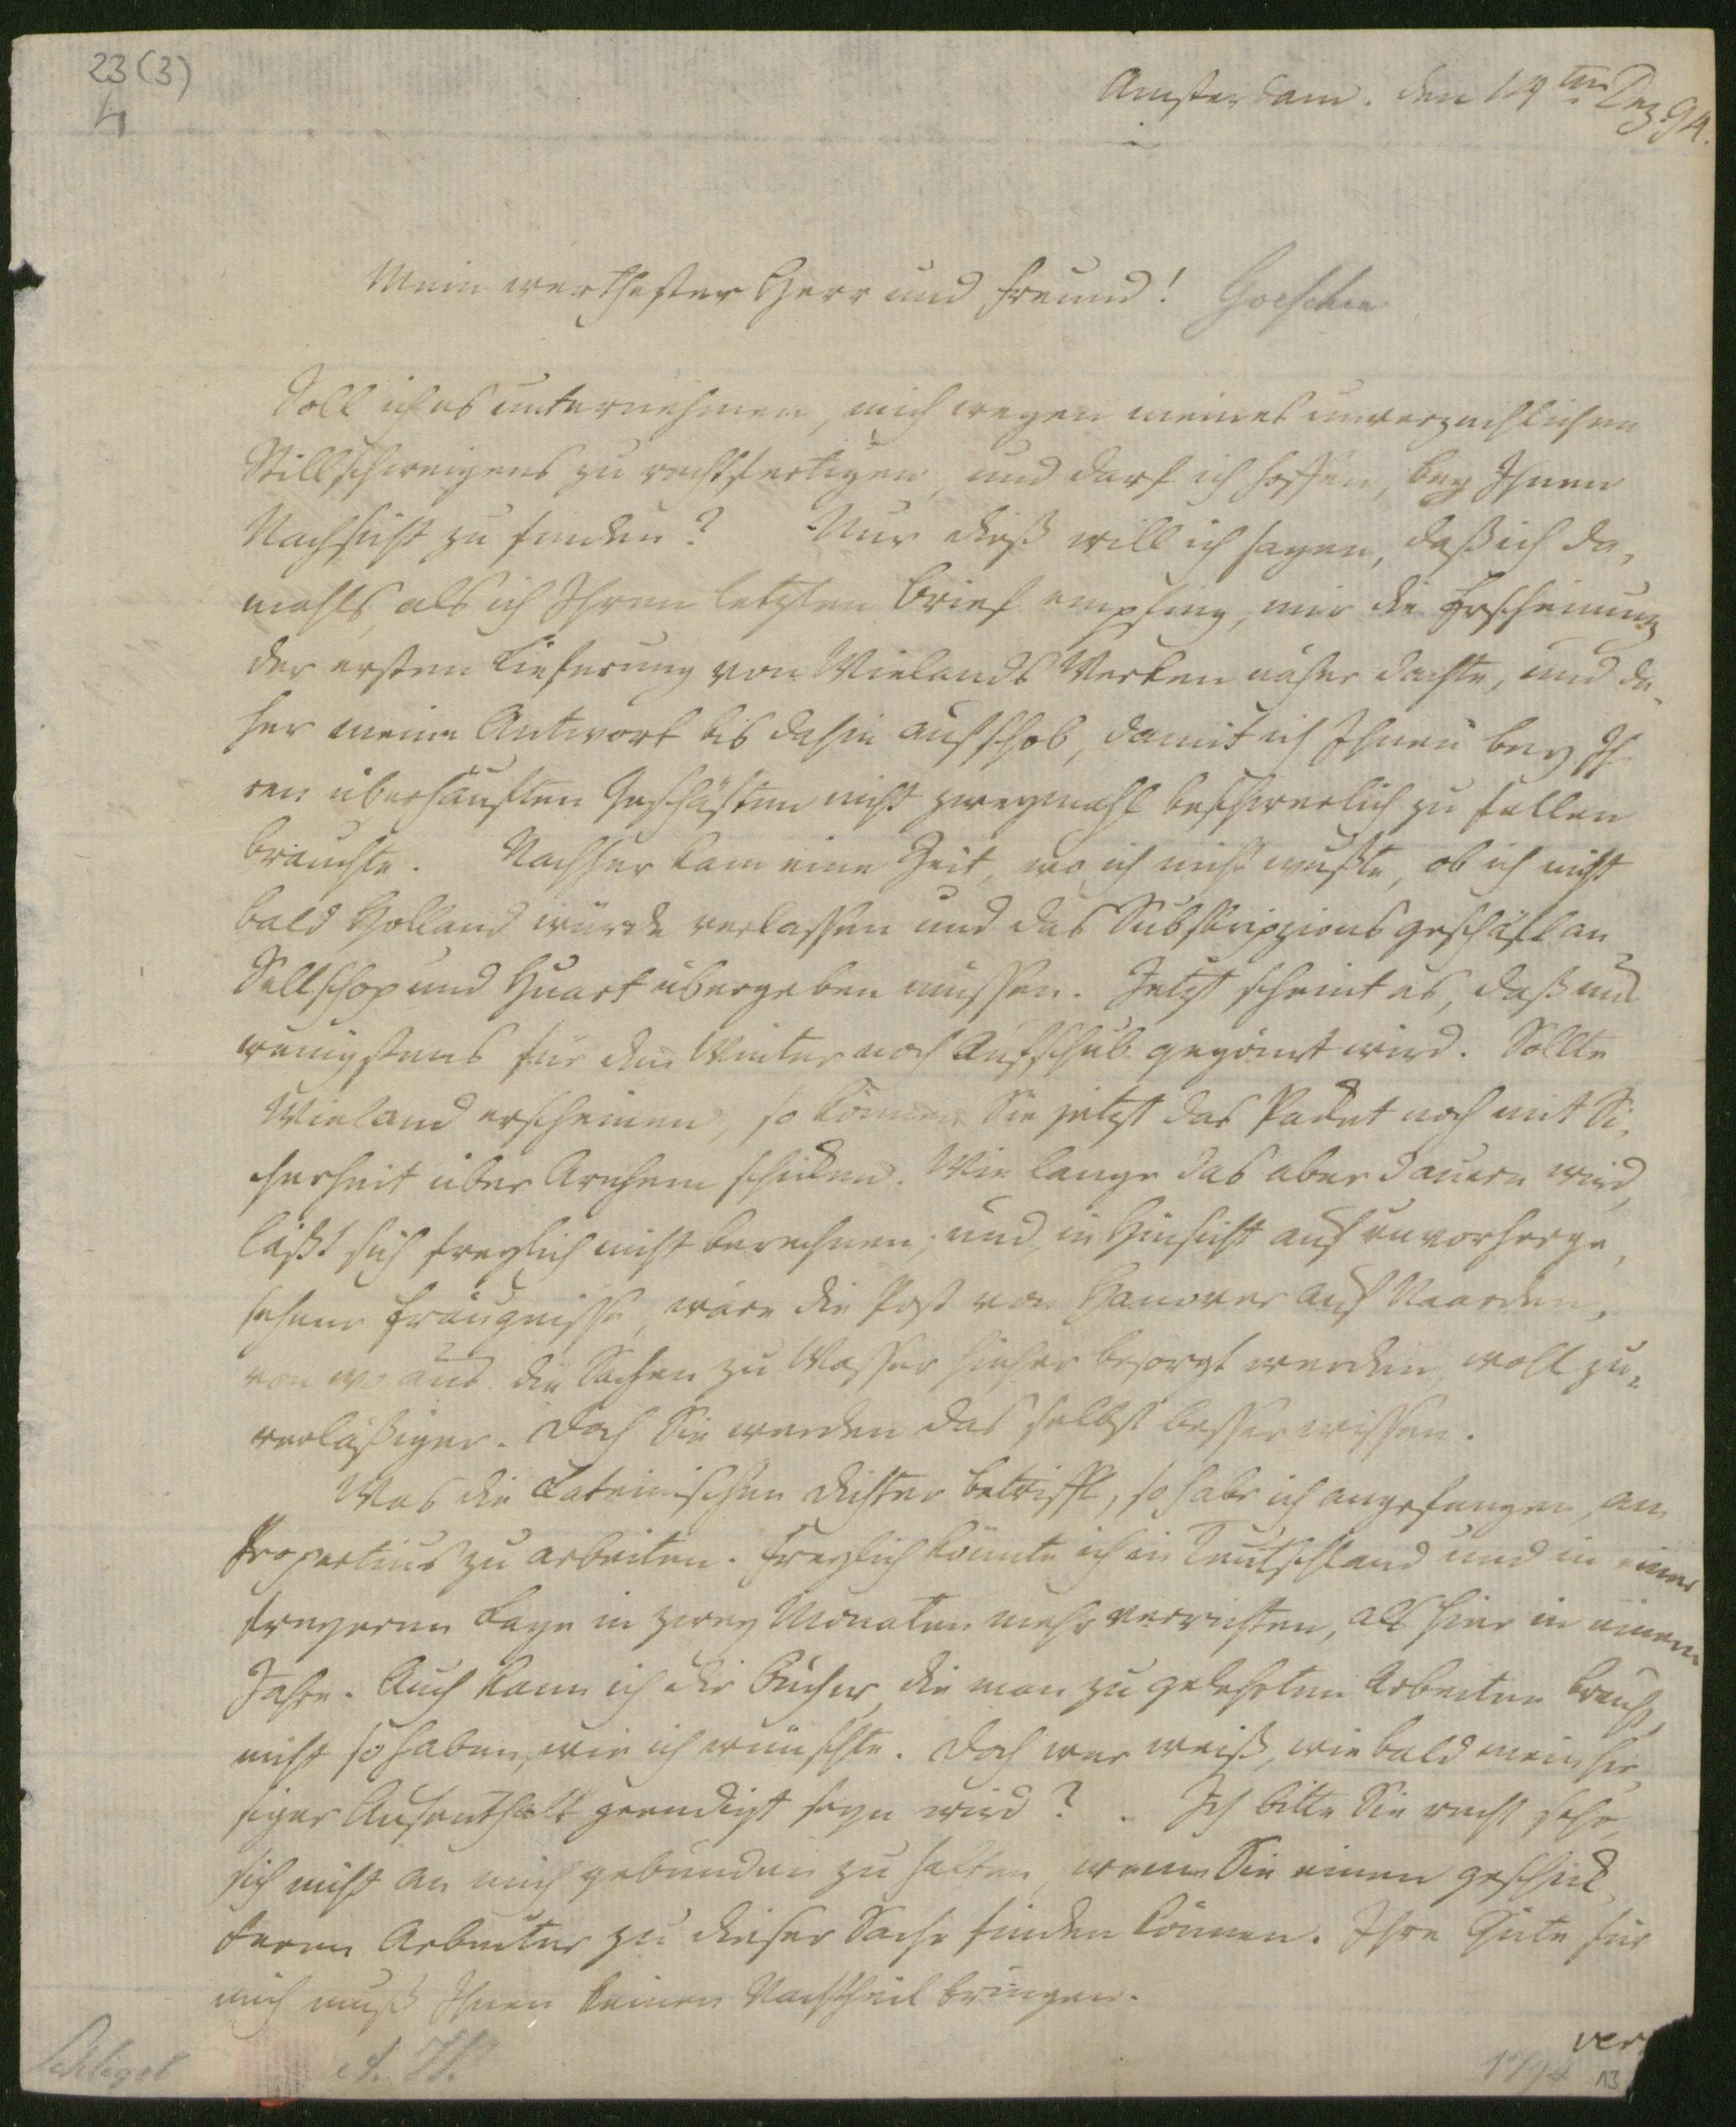 23(3)
4
Amsterdam. den 14ten Dez 94.
Mein werthester Herr und Freund! Goeschen
Soll ich es unternehmen, mich wegen meines unverzeihlichen
Stillschweigens zu rechtfertigen, und darf ich hoffen, bey Ihnen
Nachsicht zu finden? Nur dieß will ich sagen, daß ich da-
mahls, als ich Ihren letzten Brief empfing, mir die Erscheinung
der ersten Lieferung von Wielands Werken näher dachte, und da-
her meine Antwort bis dahin aufschob, damit ich Ihnen bey Ih-
ren überhäuften Geschäften nicht zweymahl beschwerlich zu fallen
brauchte. Nachher kam eine Zeit, wo ich nicht wußte, ob ich nicht
bald Holland würde verlassen und das Subskripzionsgeschäft an
Sellschop und Huart übergeben müssen. Jetzt scheint es, daß uns
wenigstens für den Winter noch Aufschub gegönnt wird. Sollte
Wieland erscheinen, so können Sie jetzt das Packet noch mit Si-
cherheit über Arnheim schicken. Wie lange das aber dauern wird,
läßt sich freylich nicht berechnen; und, in Hinsicht auf unvorherge-
sehene Eräugnisse, wäre die Post von Hanover auf Naarden,
von wo aus die Sachen zu Wasser hieher besorgt werden, wohl zu-
verläßiger. Doch Sie werden das selbst besser wissen.
Was die Lateinischen Dichter betrifft, so habe ich angefangen, am
Propertius zu arbeiten. Freylich könnte ich in Teutschland und in einer
freyeren Lage in zwey Monaten mehr verrichten, als hier in einem
Jahre. Auch kann ich die Bücher, die man zu gelehrten Arbeiten braucht,
nicht so haben, wie ich wünschte. Doch wer weiß, wie bald mein hie-
siger Aufenthalt geendigt seyn wird? Ich bitte Sie recht sehr,
sich nicht an mich gebunden zu halten, wenn Sie einen geschick-
teren Arbeiter zu dieser Sache finden können. Ihre Güte für
mich muß Ihnen keinen Nachtheil bringen.
ver
Schlegel A. W. 1794 13